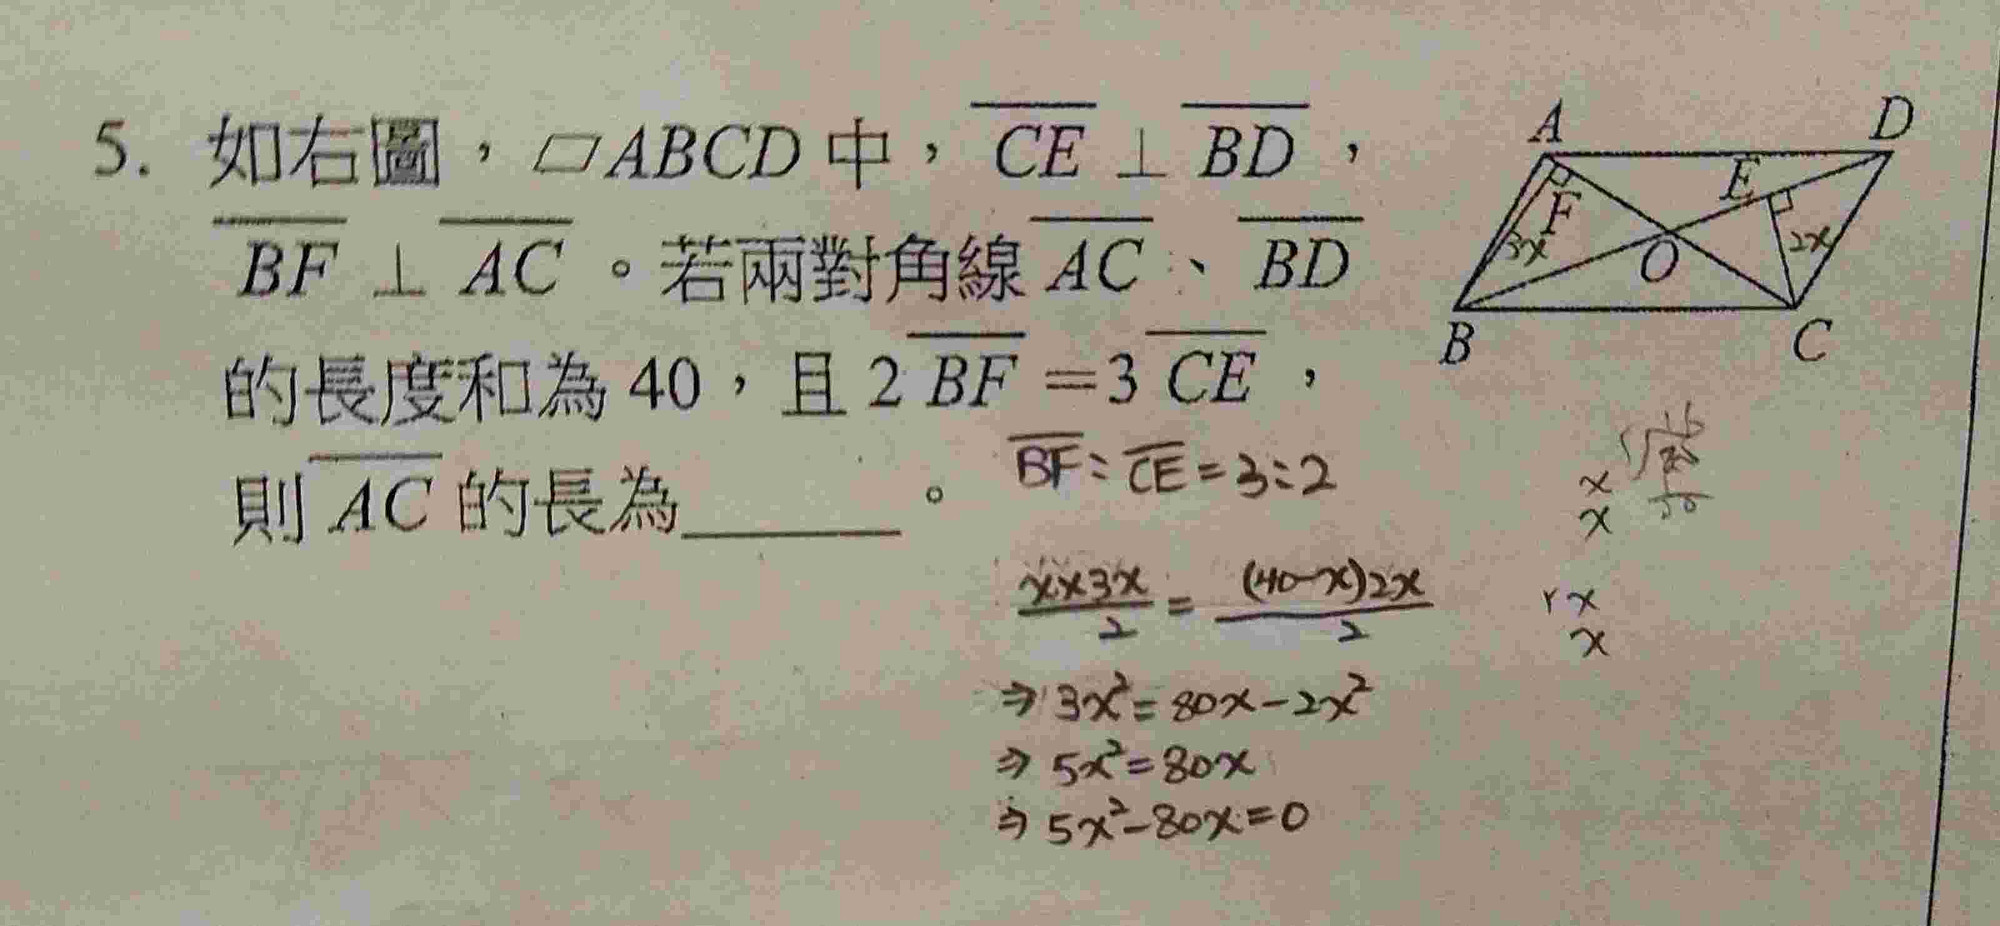 5. 如右圖，▱ABCD 中，CE⊥BD，
BF⊥AC。若兩對角線 AC、BD
的長度和為 40，且 2BF=3CE，
則 AC 的長為______。
A
D
E
F
3x
O
2x
B
C
BF:CE=3:2
x×3x/2=(40-x)2x/2
⇒3x²=80x-2x²
⇒5x²=80x
⇒5x²-80x=0
x
x
x
x